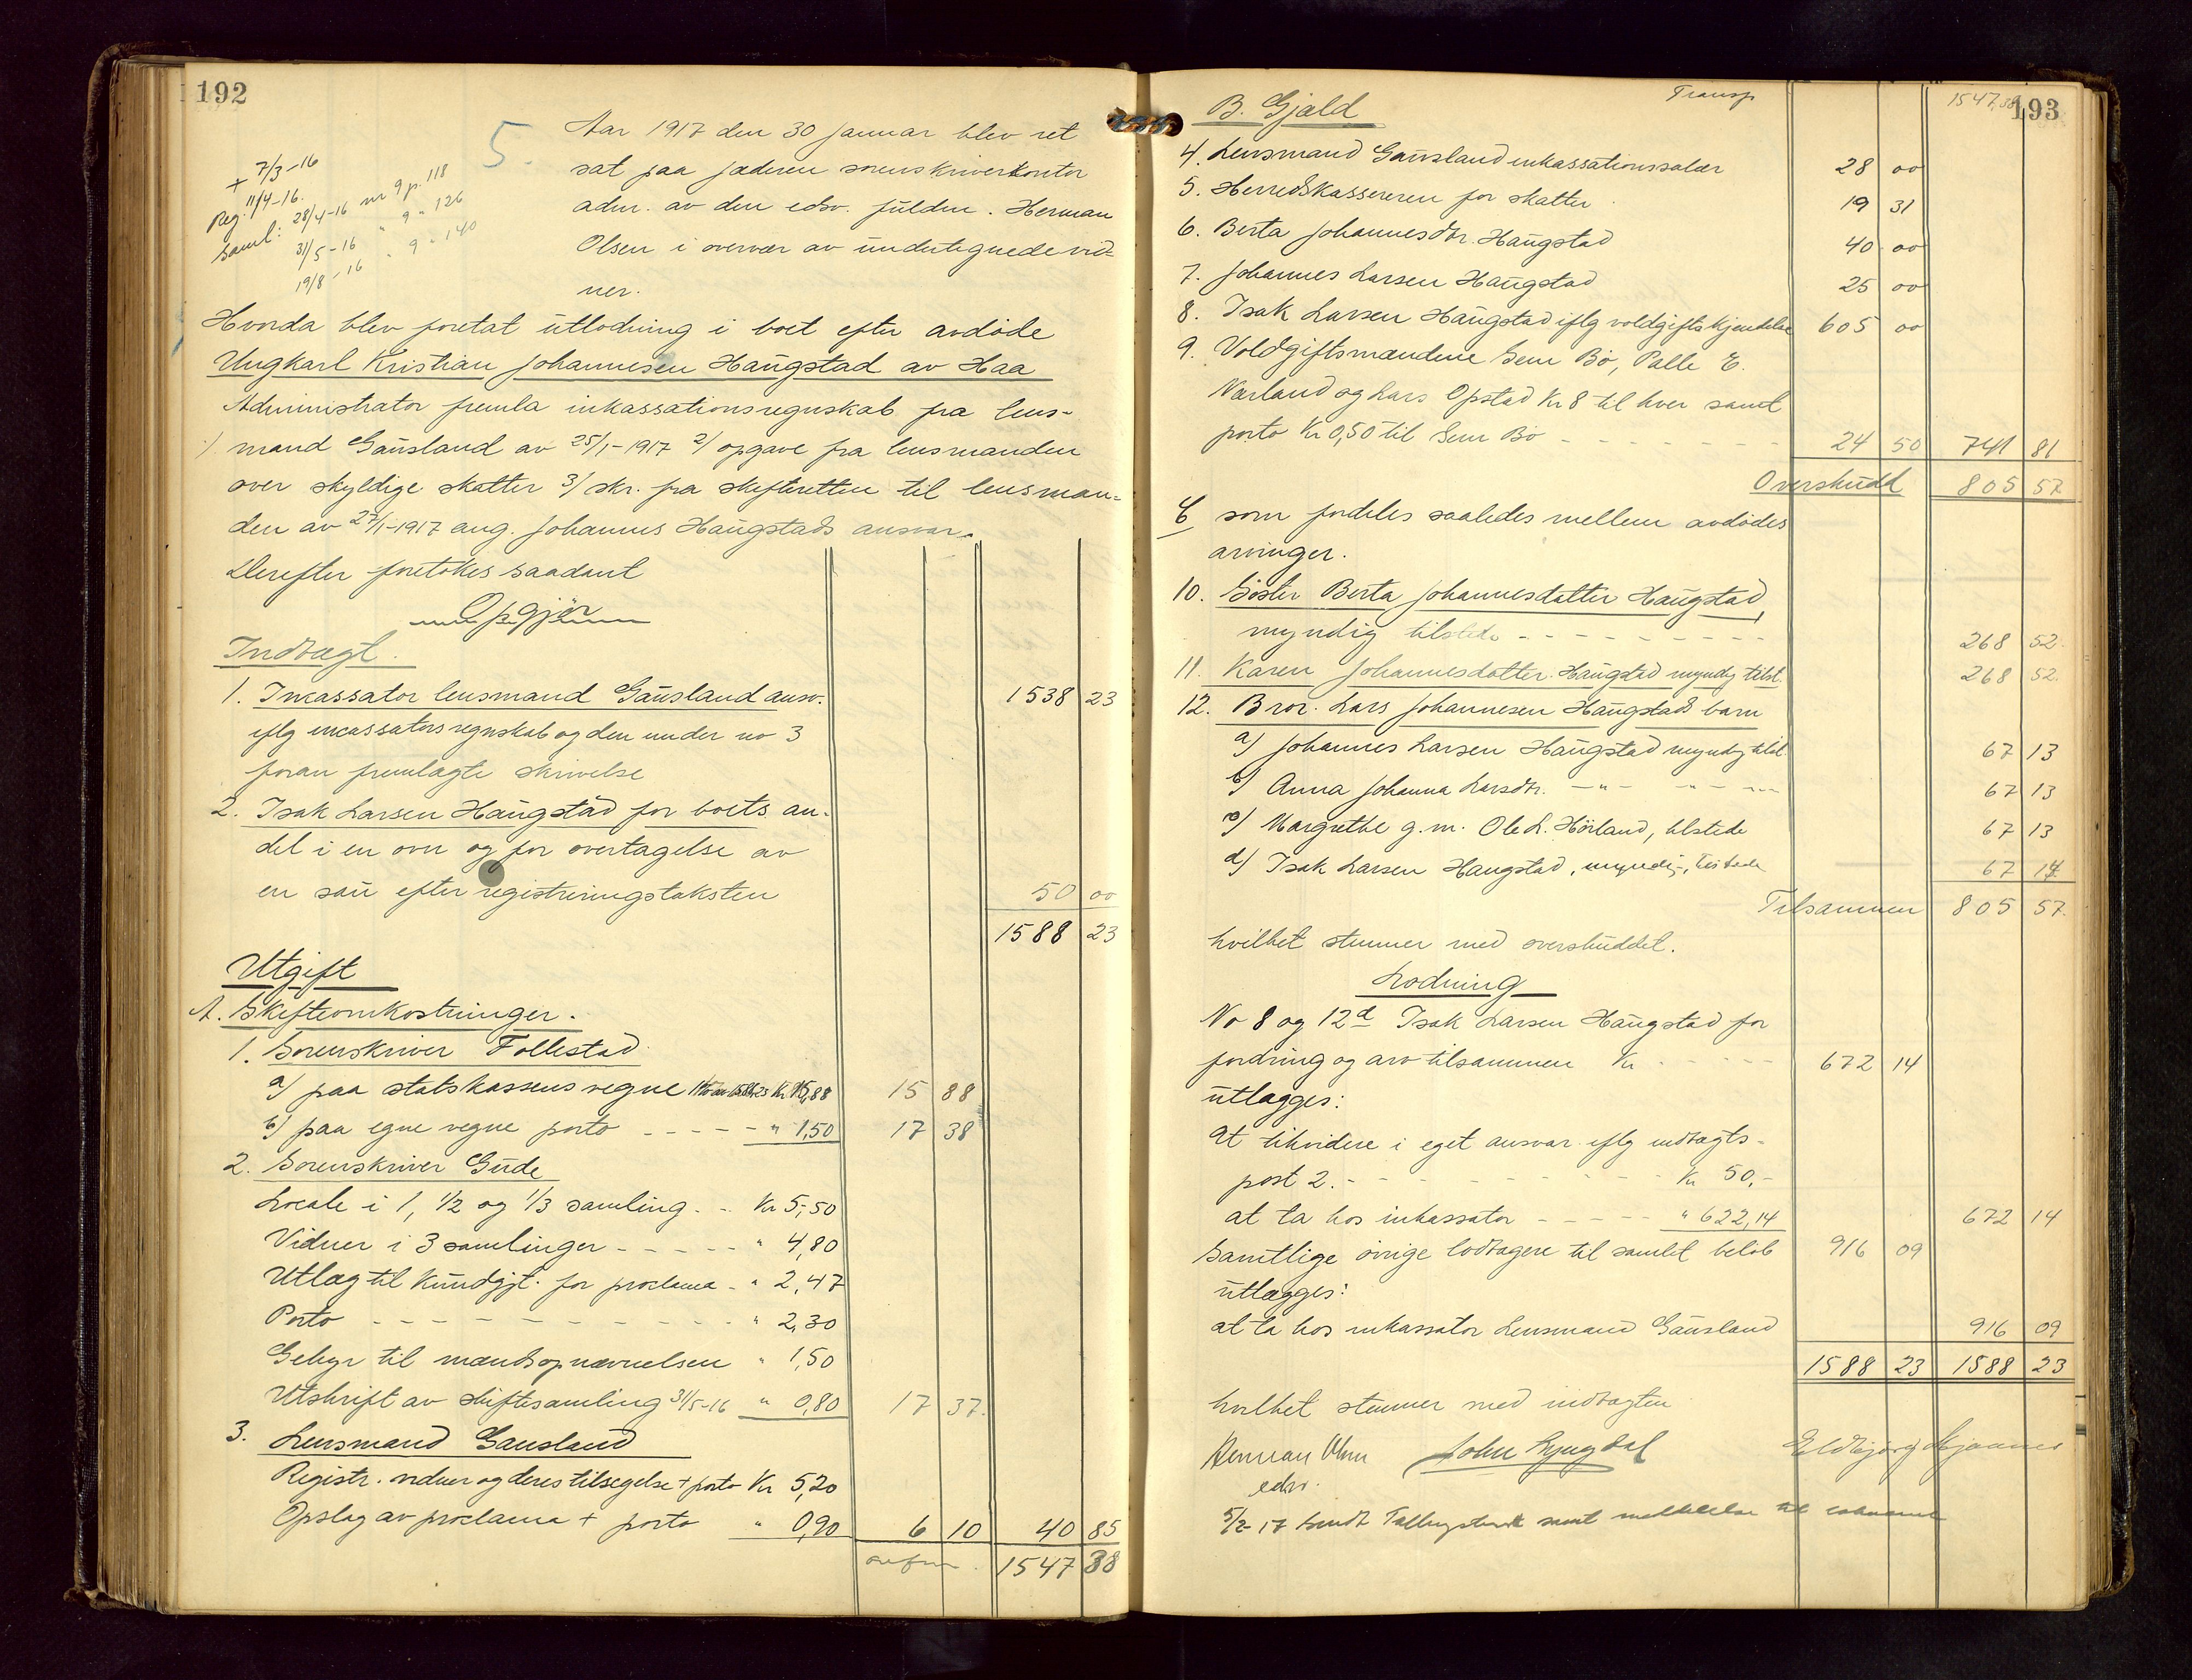 192
5.
Aar 1917 den 30 januar blev ret
sat paa jæderen sorenskriverkontor
adm. av den edsv. fuldm. Herman
Olsen i overvær av undertegnede vid-
ner.
+ 7/3-16
Reg. 11/4-16.
Saml: 28/4-16 nr 9 p. 118
31/5-16 " 9 " 126
19/8-16 " 9 " 140
Hvorda blev foretat utlodning i boet efter avdøde
Ungkarl Kristian Johannesen Haugstad av Haa
Administrator fremla inkassationsregnskab fra lens-
1/ mand Gausland av 25/1-1917 2/ opgave fra lensmanden
over skyldige skatter 3/ skr. fra skifteretten til lensman-
den av 27/1-1917 ang. Johannes Haugstads ansvar.
Derefter foretokes saadant
Opgjør
Indtægt.
1. Incassator lensmand Gausland ansv. 1538 23
iflg incassators regnskab og den under no 3
foran fremlagte skrivelse
2. Isak Larsen Haugstad for boets an-
del i en ovn og for overtagelse av
en sau efter registreringstaksten 50 00
1588 23
Utgift
A. Skifteomkostninger.
1. Sorenskriver Follestad
a) paa statskassens vegne 1% av 1588,23 Kr. 15,88 15 88
b) paa egne vegne porto - - - - - " 1,50 17 38
2. Sorenskriver Gude
Locale i 1, 1/2 og 1/3 samling - - Kr 5,50
Vidner i 3 samlinger - - - - - " 4,80
Utlæg til Kundgjt. for proclama - " 2,47
Porto - - - - - - - - - - - " 2,30
Gebyr til mændsopnævnelsen " 1,50
Utskrift av skiftesamling 31/5-16 " 0,80 17 37
3. Lensmand Gausland
Registr. vidner og deres tilsegelse + porto Kr 5,20
Opslag av proclama + porto " 0,90 6 10 40 85
1547 38
193
B. Gjæld Transp 1547,38
4. Lensmand Gausland inkassationssalær 28 00
5. Herredskassereren for skatter 19 31
6. Berta Johannesdtr. Haugstad 40 00
7. Johannes Larsen Haugstad 25 00
8. Isak Larsen Haugstad iflg voldgiftskjendelse 605 00
9. Voldgiftsmændene Sem Bø, Palle E.
Nærland og Lars Opstad Kr 8 til hver samt
porto Kr 0,50 til Sem Bø - - - - - - - 24 50 741 81
Overskudd 805 57
C som fordeles saaledes mellem avdødes
arvinger.
10. Søster Berta Johannesdatter Haugstad,
myndig tilstede - - - - - - - - - 268 52.
11. Karen Johannesdatter Haugstad myndig tilst. 268 52.
12. Bror Lars Johannesen Haugstads barn
a) Johannes Larsen Haugstad myndig tilst 67 13
b) Anna Johanna Larsdtr. -"- -"- 67 13
c) Margrethe g.m. Ole L. Hörland, tilstede 67 13
d) Isak Larsen Haugstad, myndig, tilstede 67 14
Tilsammen 805 57.
hvilket stemmer med overskuddet.
Lodning
No 8 og 12d Isak Larsen Haugstad for
fordring og arv tilsammen Kr - - - - - 672 14
utlægges:
At likvidere i eget ansvar iflg indtægts-
post 2. - - - - - - - - - - Kr 50,-
at ta hos inkassator - - - - - " 622,14 672 14
Samtlige øvrige lodtagere til samlet beløb 916 09
utlægges:
at ta hos inkassator Lensmand Gausland 916 09
1588 23 1588 23
hvilket stemmer med indtægten
Herman Olsen John Lyngdal
edsv.
5/2-17 sendt samt meddelelse til